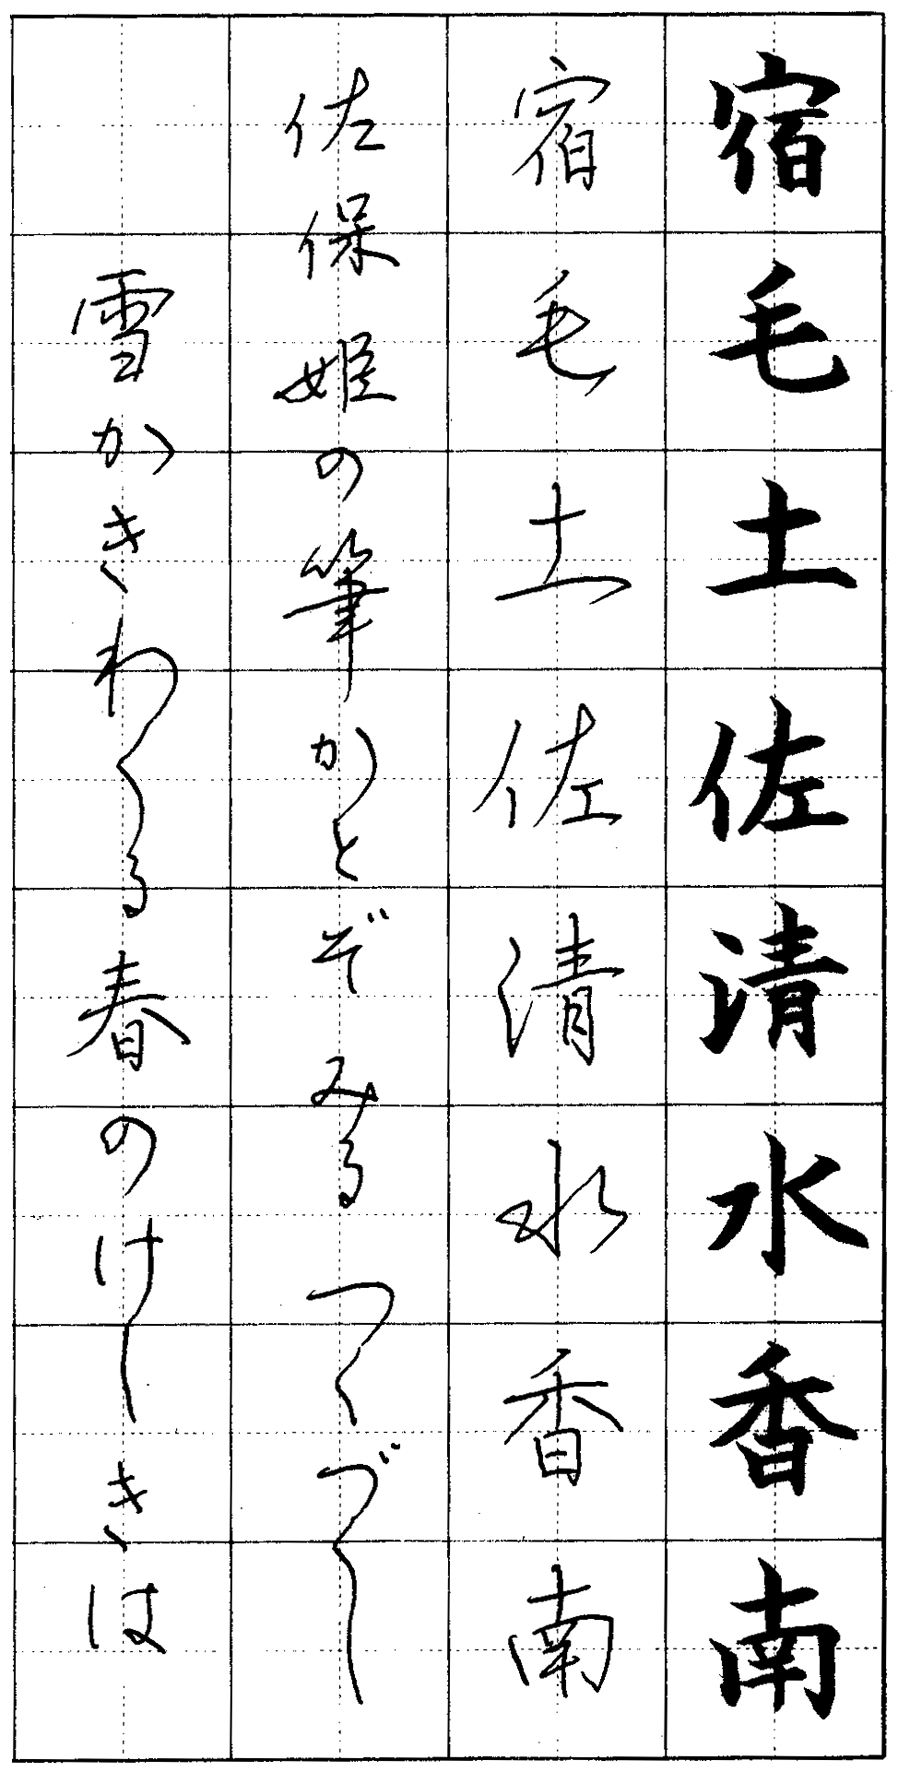 宿毛土佐清水香南
宿毛土佐清水香南
佐保姫の筆かとぞみるつくづくし
雪かきわくる春のけしきは